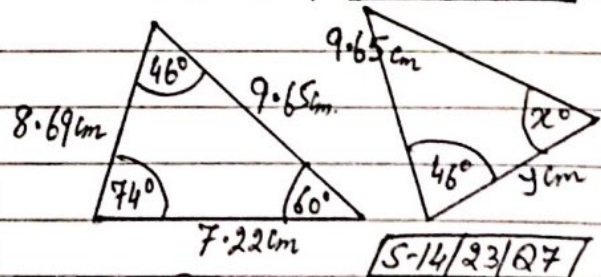 46°
9.65cm
8.69cm
74°
60°
7.22cm
9.65cm
x°
46°
ycm
S-14/23/Q7